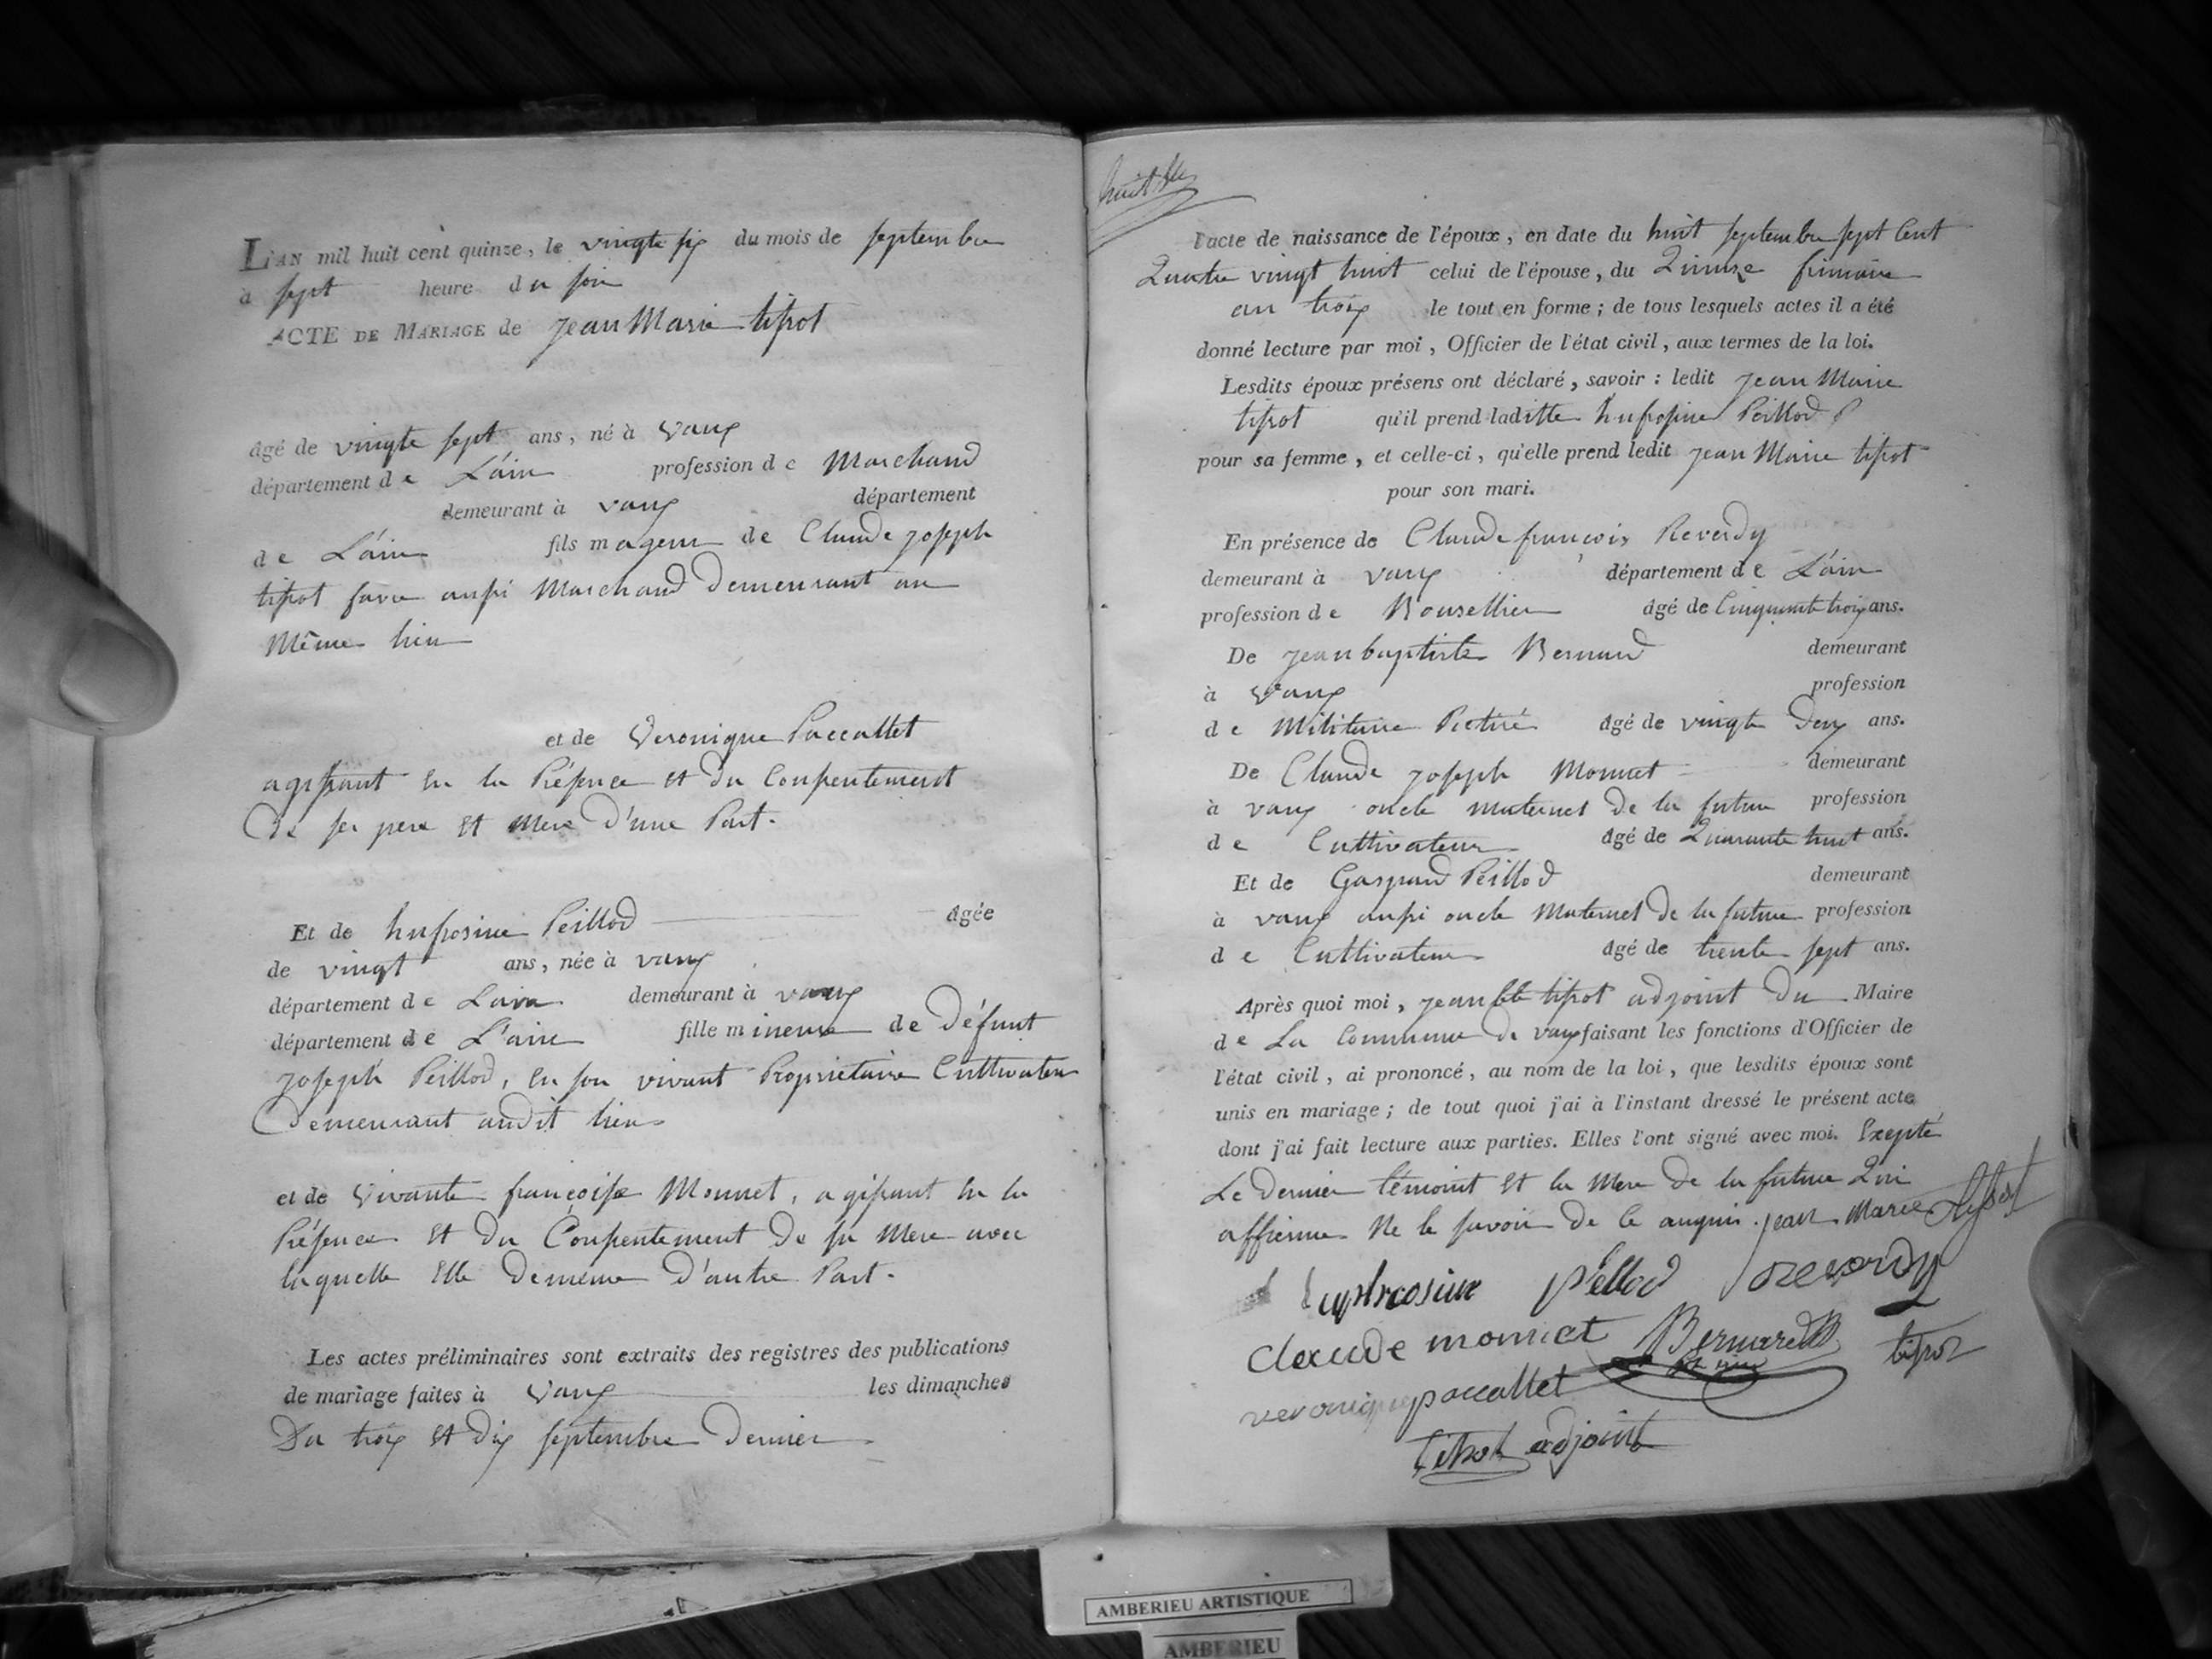 L'AN mil huit cent quinze, le vingte six du mois de septembre
à sept heure du soir
ACTE DE MARIAGE de jean Marie tissot
âgé de vingte sept ans, né à vaux
département de L'ain profession de Marchand
demeurant à vaux département
de L'ain fils mageur de Claude joseph
tissot favre aussi Marchand demeurant au
Même lieu
et de Veronique Paccallet
agissant En la Présence Et du Consentement
De ses pere Et Mere D'une Part.
Et de hufrosine Peillod âgée
de vingt ans, née à vaux
département de Lain demeurant à vaux
département de L'ain fille mineure de Défunt
joseph Peillod, En son vivant Proprietaire Cultivateur
Demeurant audit lieu
et de Vivante françoise Monnet, agissant En la
Présence Et du Consentement De sa Mere avec
laquelle Elle Demeure D'autre Part.
Les actes préliminaires sont extraits des registres des publications
de mariage faites à Vaux les dimanches
Du trois Et Dix septembre Dernier
huit
l'acte de naissance de l'époux, en date du huit septembre sept Cent
Quatre vingt huit celui de l'épouse, du Quinze frimaire
an trois le tout en forme; de tous lesquels actes il a été
donné lecture par moi, Officier de l'état civil, aux termes de la loi.
Lesdits époux présens ont déclaré, savoir: ledit jean Marie
tissot qu'il prend laditte hufrosine Peillod
pour sa femme, et celle-ci, qu'elle prend ledit jean Marie tissot
pour son mari.
En présence de Claude françois Reverdy
demeurant à vaux département de L'ain
profession de Bourellier âgé de Cinquante trois ans.
De jean baptiste Bernard demeurant
à vaux profession
de Militaire Retiré âgé de vingte Deux ans.
De Claude joseph Monnet demeurant
à vaux oncle maternel De la future profession
de Cultivateur âgé de Quarante huit ans.
Et de Gaspard Peillod demeurant
à vaux aussi oncle Maternel De la future profession
de Cultivateur âgé de trente sept ans.
Après quoi moi, jean bte tissot adjoint Du Maire
de La Commune De vaux faisant les fonctions d'Officier de
l'état civil, ai prononcé, au nom de la loi, que lesdits époux sont
unis en mariage; de tout quoi j'ai à l'instant dressé le présent acte
dont j'ai fait lecture aux parties. Elles l'ont signé avec moi. Excepté
Le Dernier témoint Et la Mere De la future Qui
affirme Ne le savoir De ce anquis. jean Marie tissot
Euphrosine pèllod reverdy
claude monnet Bernard tissot
veronique paccallet
tissot adjoint
AMBERIEU ARTISTIQUE
AMBERIEU